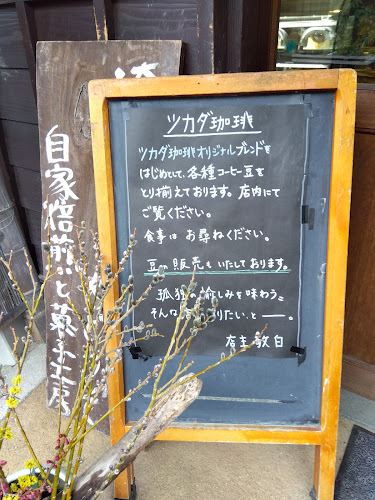 ツカダ珈琲
ツカダ珈琲オリジナルブレンドを
はじめとして、各種コーヒー豆を
とり揃えております。店内にて
ご覧ください。
食事は お尋ねください。
豆の販売もいたしております。
孤独の愉しみを味わう
そんな
りたい、と――。
店主 敬白
自家焙煎いと菓子工房